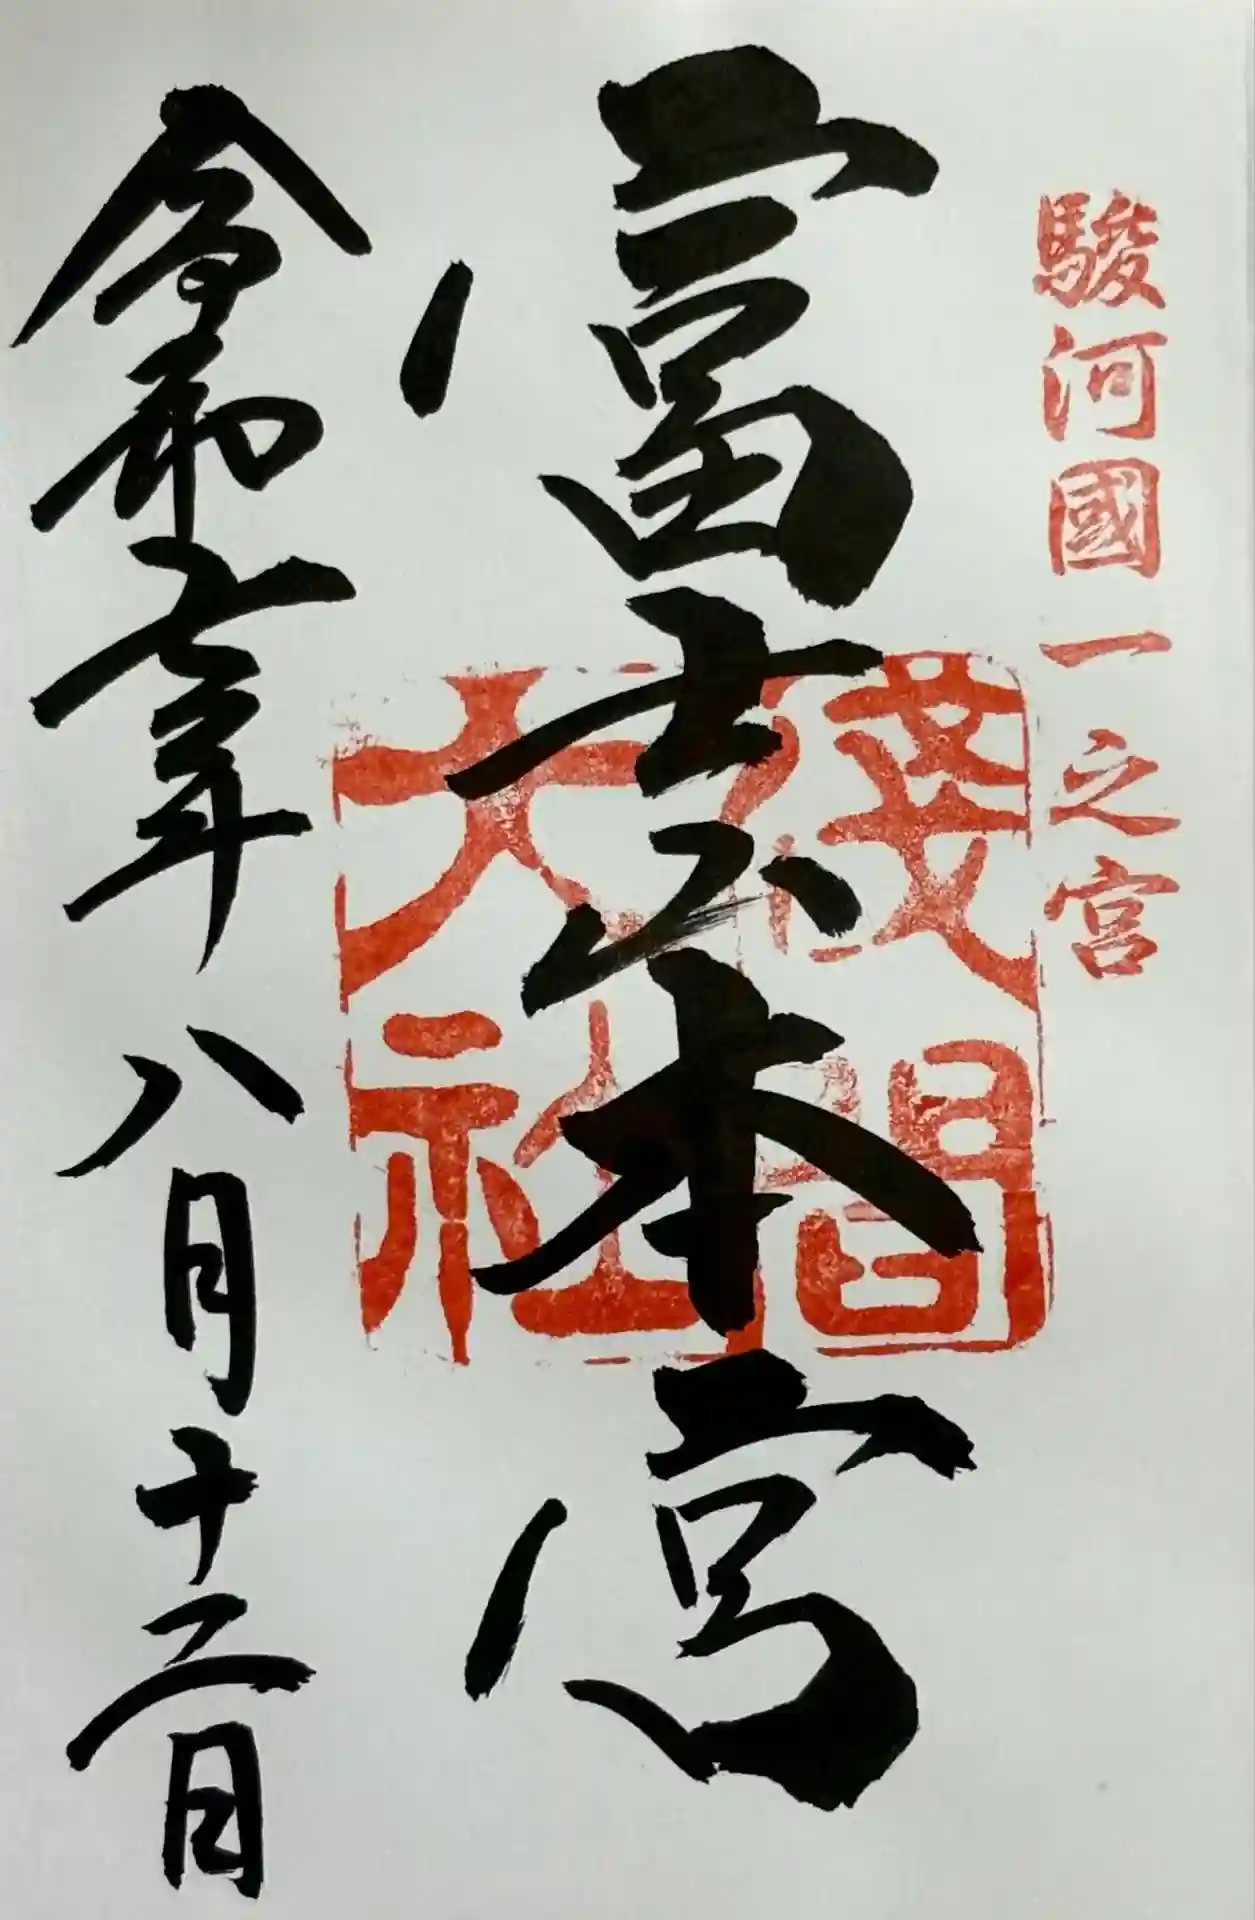 駿河國一之宮
富士山本宮
淺間大社
令和七年八月十三日